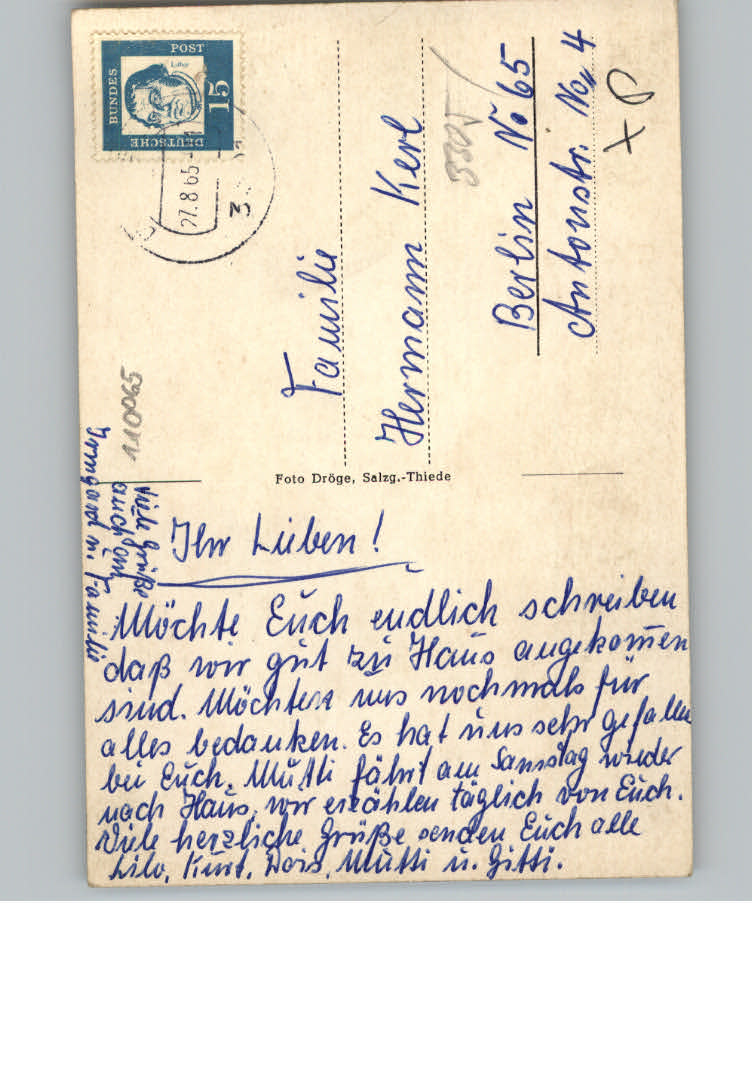 Ihr Lieben!
Möchte Euch endlich schreiben
daß wir gut zu Haus angekom̅en
sind. Möchten uns nochmals für
alles bedanken. Es hat uns sehr gefallen
bei Euch. Mutti fährt am Samstag wieder
nach Haus, wir erzählen täglich von Euch.
Viele herzliche Grüße senden Euch alle
Lilo, Kurt, Doris, Mutti u. Gitti.
Viele Grüße
auch an
Irmgard u. Familie
110065
Foto Dröge, Salzg.-Thiede
DEUTSCHE
BUNDES
POST
Luther
15
27.8.65
3
Familie
Hermann Kerl
Berlin No 65
Antonstr. No. 4